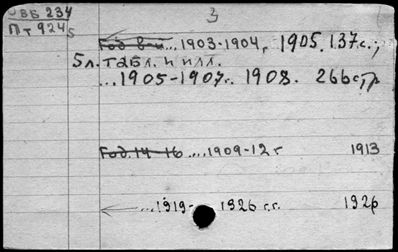 ЗВБ 234
Пт 9245
3
Год 8-й ... 1903-1904, 1905. 137с.;
5 л. табл. и илл.
... 1905-1907г. 1908. 266 стр
Год. 14-16 .... 1909-12 г 1913
... 1919- 1926 г.г. 1926